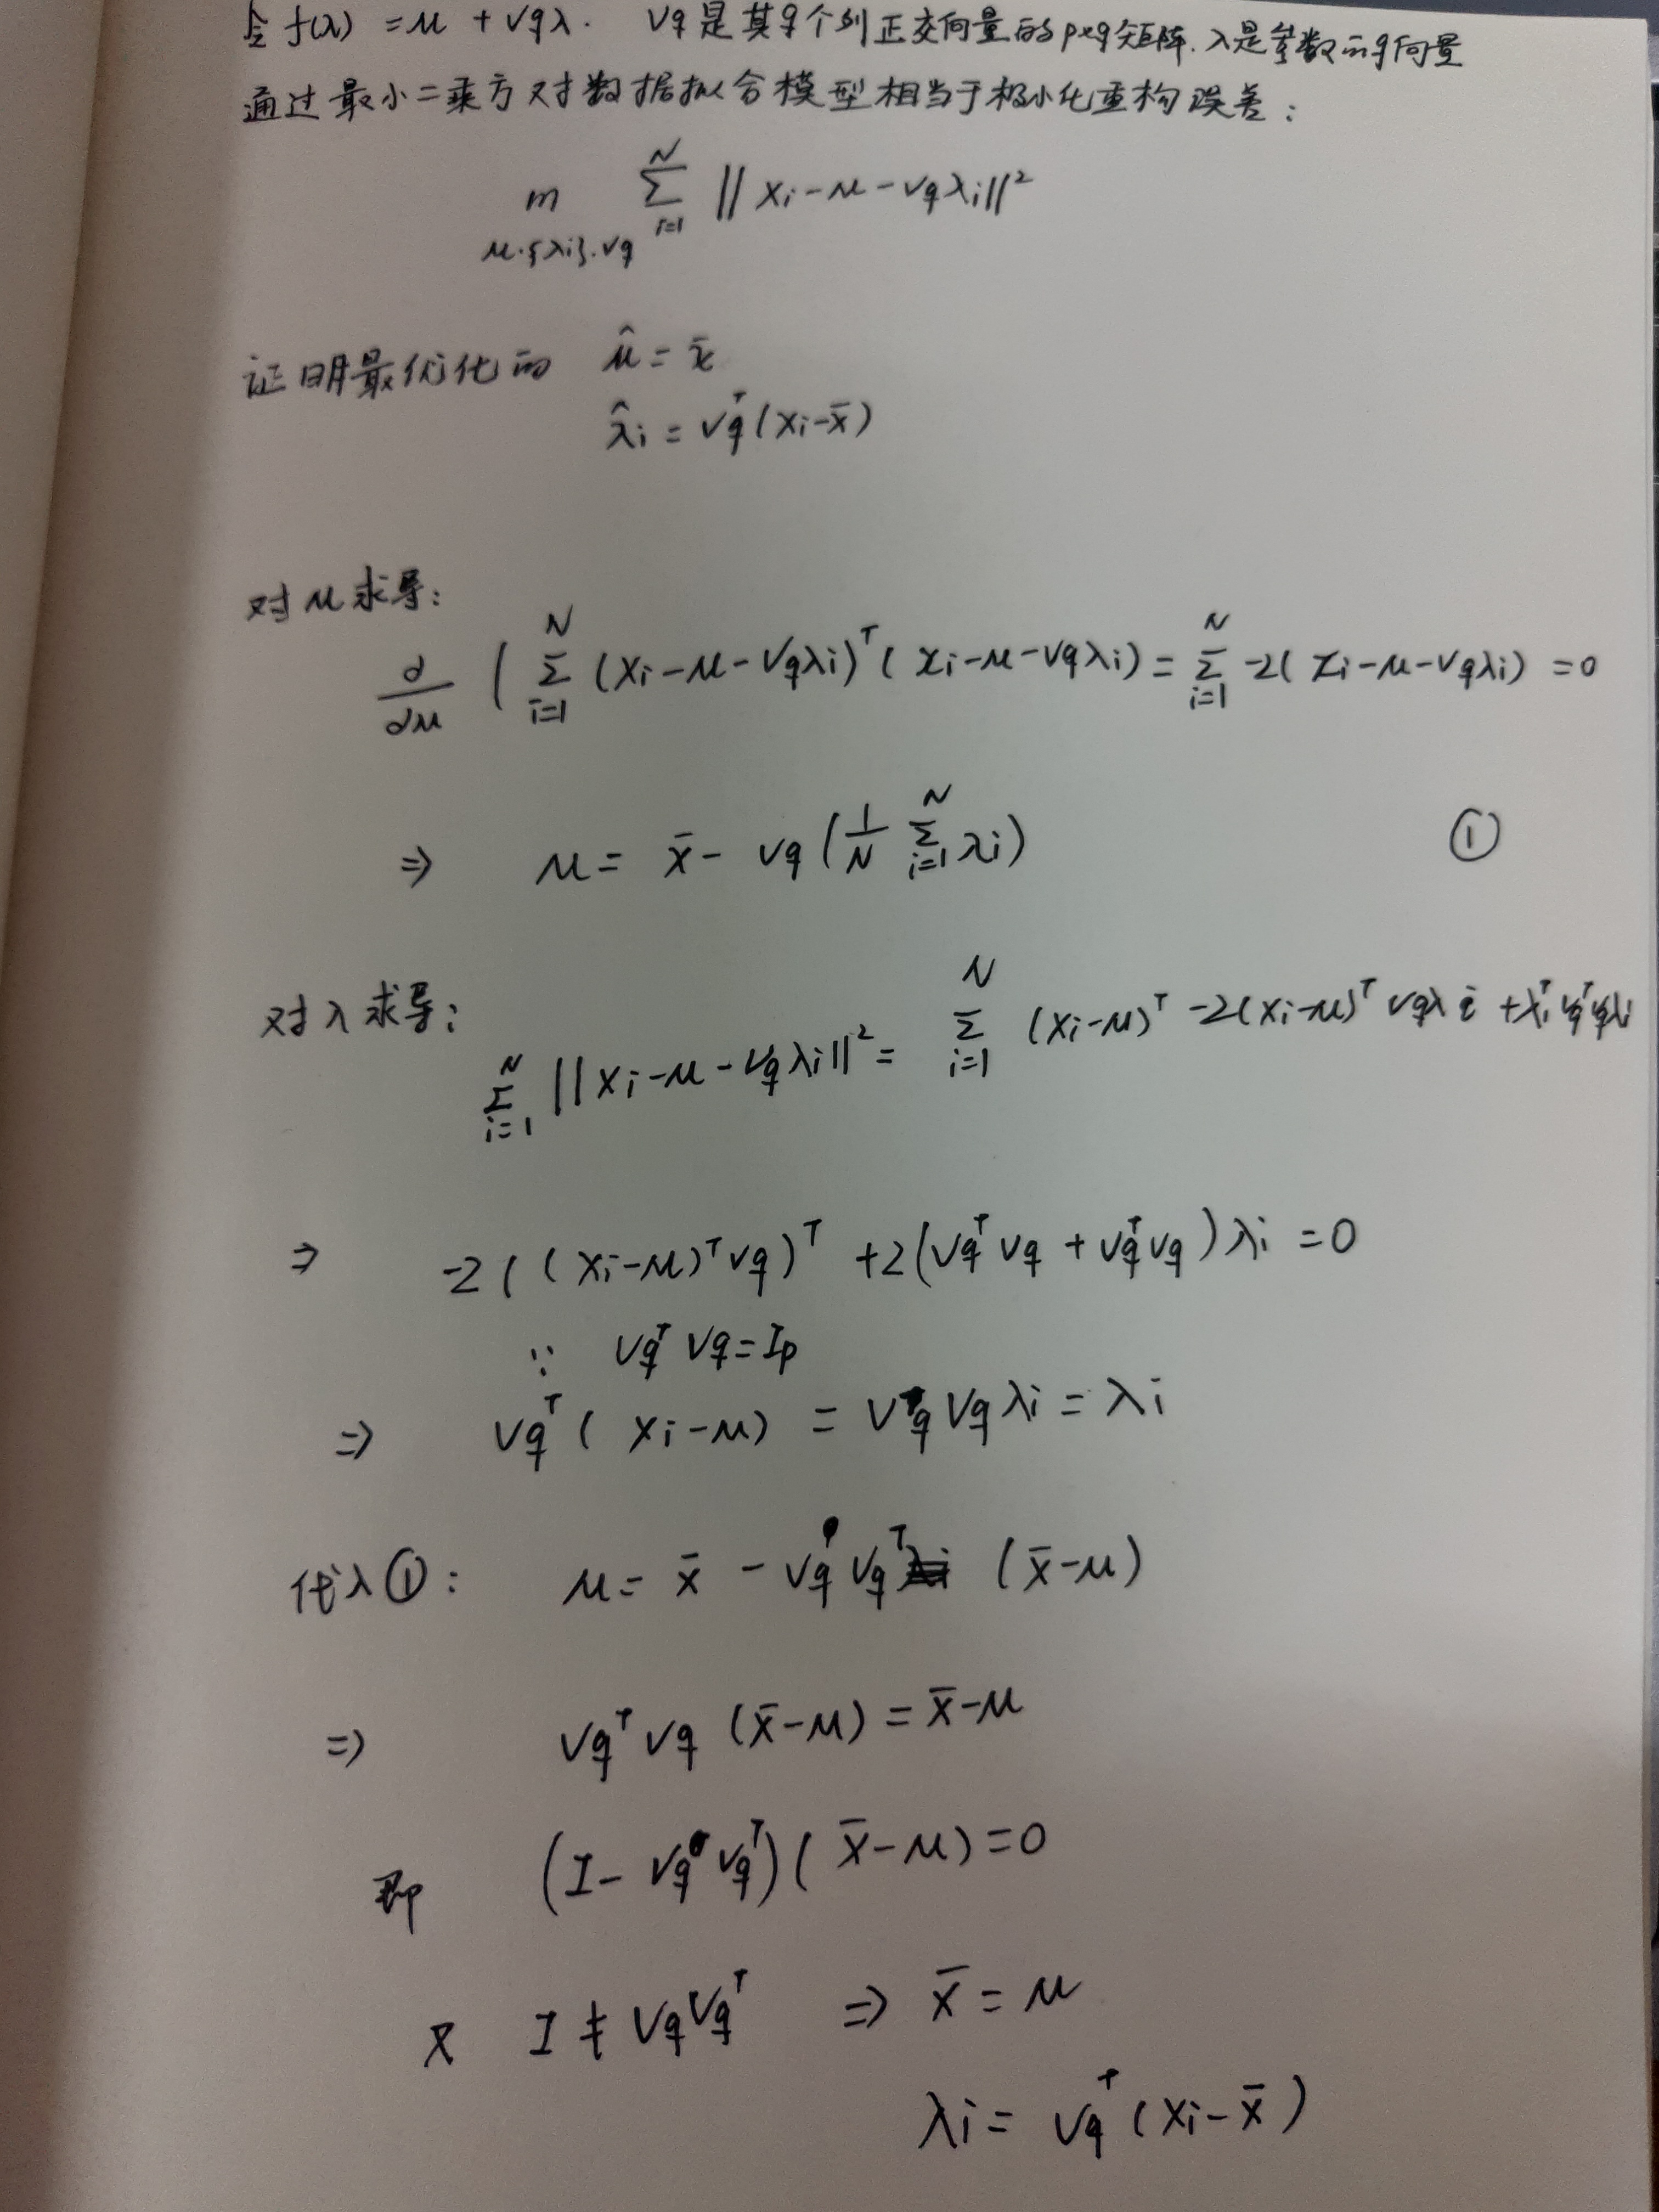 令 f(λ) = μ + Vqλ. Vq是其q个列正交向量的p×q矩阵. λ是参数的q向量
通过最小二乘方对数据拟合模型相当于极小化重构误差:
m Σ_{i=1}^{N} ||xi-μ-Vqλi||²
μ.{λi}.Vq
证明最优化的 μ̂ = x̄
λ̂i = Vq^T(xi-x̄)
对μ求导:
d/dμ ( Σ_{i=1}^{N} (xi-μ-Vqλi)^T (xi-μ-Vqλi) = Σ_{i=1}^{N} -2(xi-μ-Vqλi) = 0
⇒ μ = x̄ - Vq(1/N Σ_{i=1}^{N} λi) ①
对λ求导:
Σ_{i=1}^{N} ||xi-μ-Vqλi||² = Σ_{i=1}^{N} (xi-μ)^T -2(xi-μ)^T Vqλi + λi^T Vq^T Vqλi
⇒ -2((xi-μ)^T Vq)^T +2(Vq^T Vq + Vq^T Vq)λi = 0
∵ Vq^T Vq = Ip
⇒ Vq^T(xi-μ) = Vq^T Vqλi = λi
代入①: μ = x̄ - Vq Vq^T (x̄-μ)
⇒ Vq^T Vq (x̄-μ) = x̄-μ
即 (I - Vq Vq^T)(x̄-μ) = 0
又 I ≠ VqVq^T ⇒ x̄ = μ
λi = Vq^T(xi-x̄)